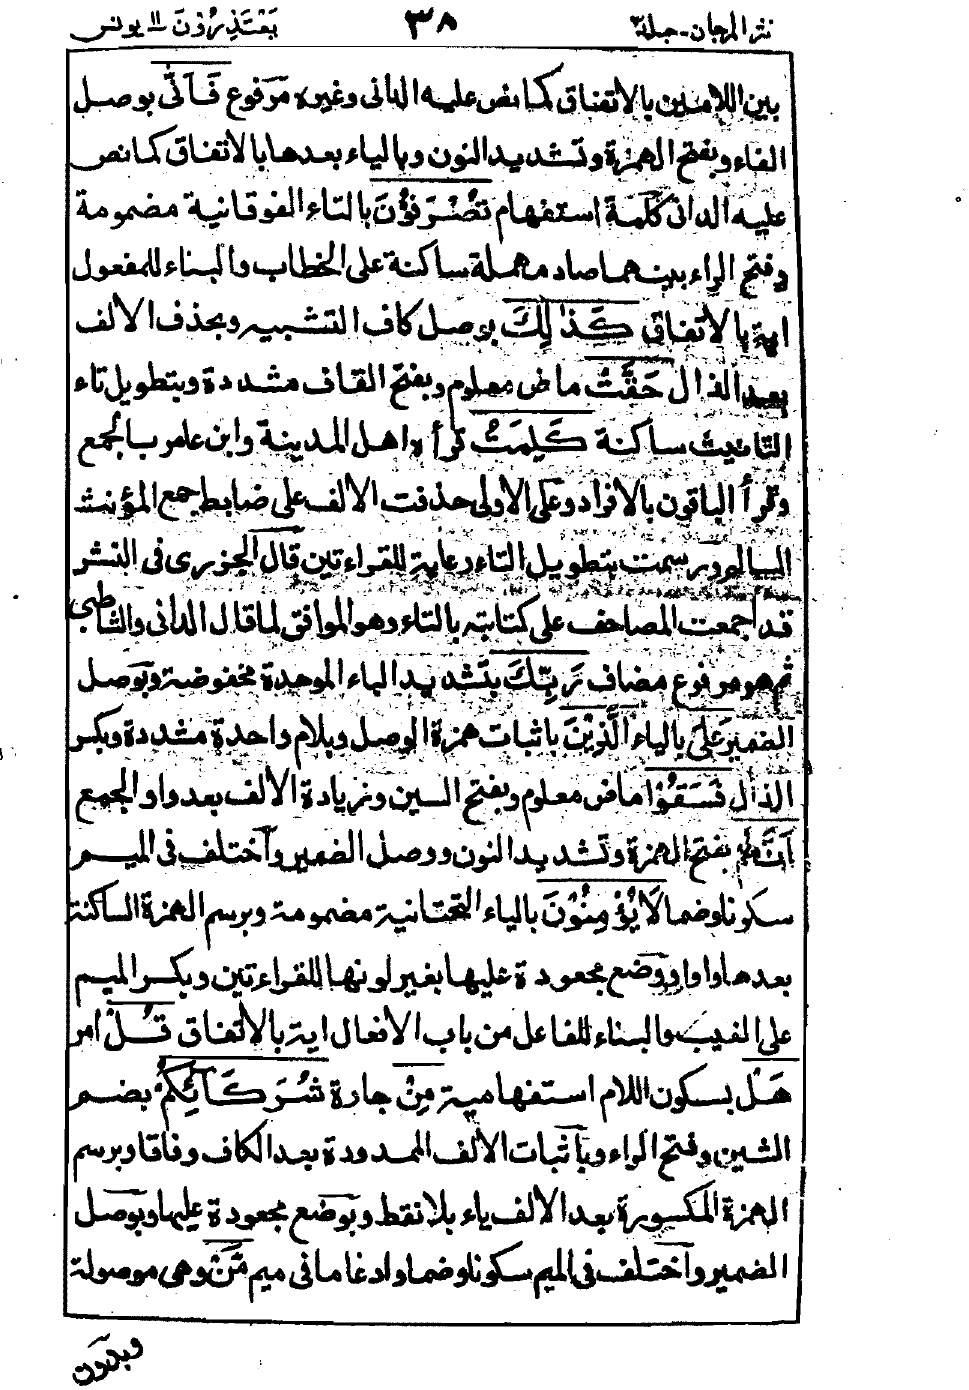 نثر المرجان - جلد٣ ٣٨ يَعْتَذِرُوْنَ ١١ يونس
بين اللامين بالاتفاق كما نص عليه الدانى وغيره مرفوع فَأَنّٰى بوصل
الفاء وبفتح الهمزة وتشديد النون وبالياء بعدها بالاتفاق كما نص
عليه الدانى كلمة استفهام تُصْرَفُوْنَ بالتاء الفوقانية مضمومة
وفتح الراء بينهما صاد مهملة ساكنة على الخطاب والبناء للمفعول
اية بالاتفاق كَذٰلِكَ بوصل كاف التشبيه وبحذف الالف
بعد الذال حَقَّتْ ماض معلوم وبفتح القاف مشددة وبتطويل تاء
التانيث ساكنة كَلِمَتُ قرأه اهل المدينة وابن عامر بالجمع
وقرأ الباقون بالافراد وعلى الاولى حذفت الالف على ضابط جمع المؤنث
السالم ورسمت بتطويل التاء رعاية للقراءتين قال الجزرى فى النشر
قد اجمعت المصاحف على كتابته بالتاء وهو الموافق لما قال الدانى والشاطبى
ثم هو مرفوع مضاف رَبِّكَ بتشديد الباء الموحدة مخفوضة وبوصل
الضمير عَلَى بالياء الَّذِيْنَ باثبات همزة الوصل وبلام واحدة مشددة وبكسر
الذال فَسَقُوْا ماض معلوم وبفتح السين وزيادة الالف بعد واو الجمع
اَنَّهُمْ بفتح الهمزة وتشديد النون ووصل الضمير واختلف فى الميم
سكونا وضما لَا يُؤْمِنُوْنَ بالياء التحتانية مضمومة وبرسم الهمزة الساكنة
بعدها واوا ووضع مجعودة عليها بغير لونها للقراءتين وبكسر الميم
على الغيب والبناء للفاعل من باب الافعال اية بالاتفاق قُلْ امر
هَلْ بسكون اللام استفهامية مِنْ جارة شُرَكَآئِكُمْ بضم
الشين وفتح الراء وباثبات الالف الممدودة بعد الكاف وفاقا وبرسم
الهمزة المكسورة بعد الالف ياء بلا نقط وبوضع مجعودة عليها وبوصل
الضمير واختلف فى الميم سكونا وضما وادغاما فى ميم مَّنْ وهى موصولة
وبدون